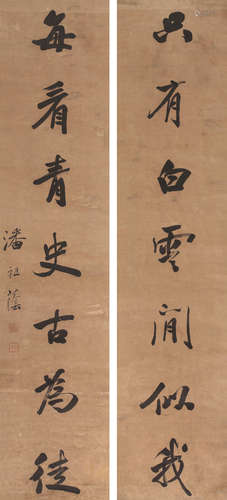 只有白雲閒似我
每看青史古為徒
潘祖蔭